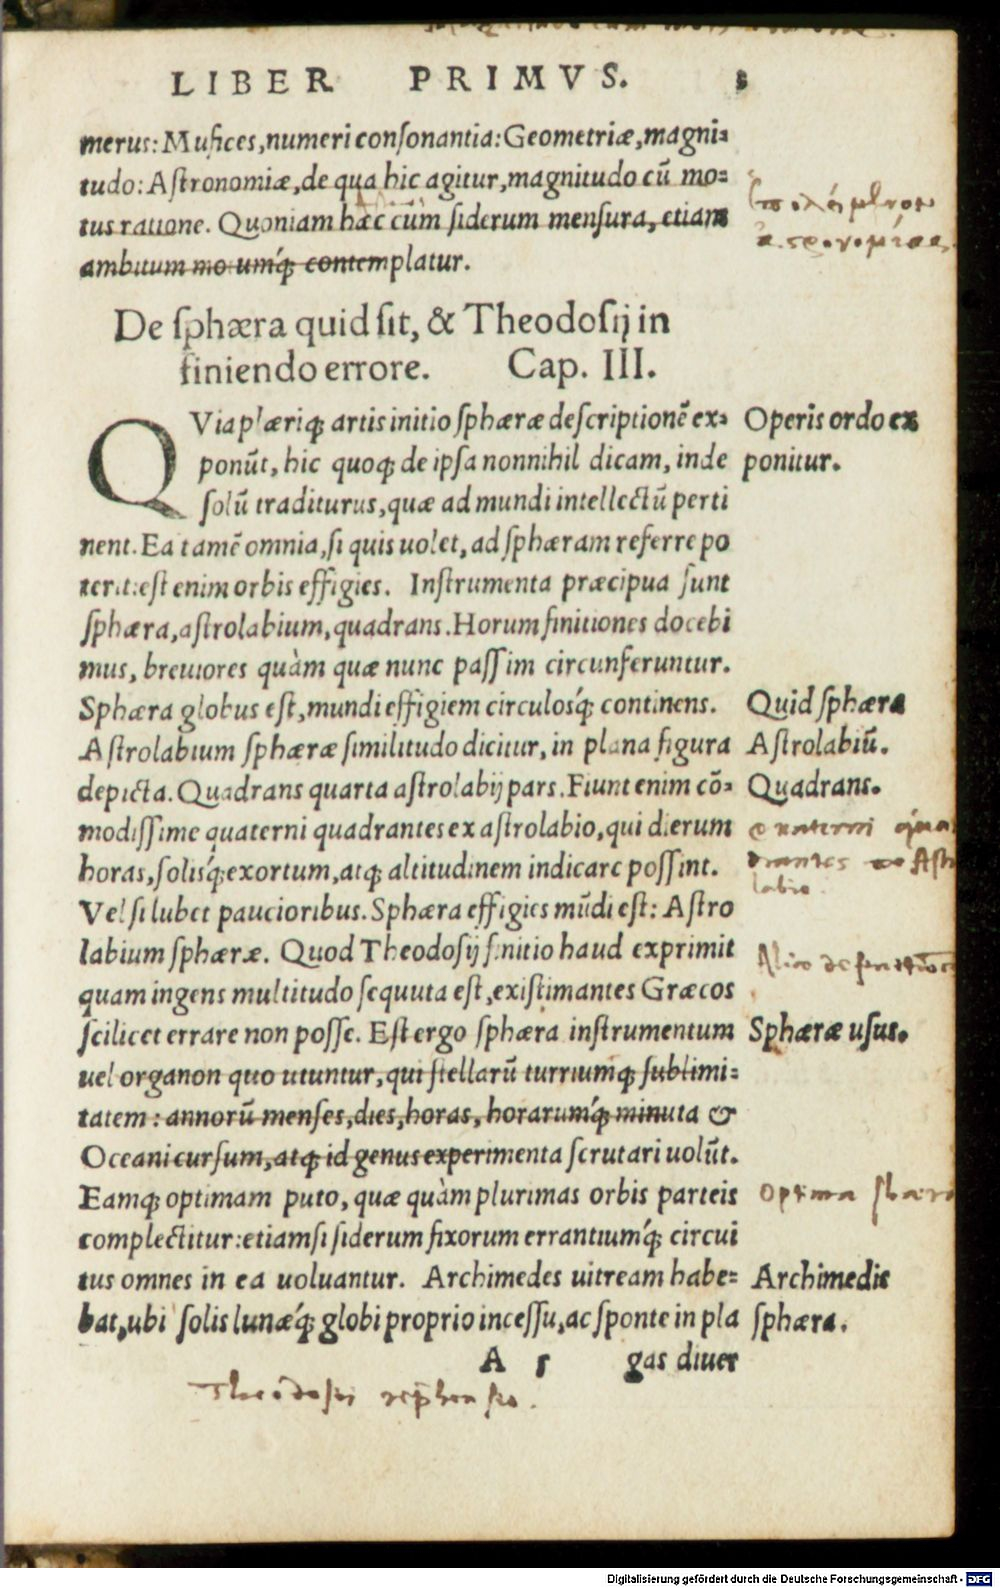 LIBER PRIMVS. 5
merus: Muſices, numeri conſonantia: Geometriæ, magni-
tudo: Aſtronomiæ, de qua hic agitur, magnitudo cū mo-
tus ratione. Quoniam hæc cùm ſiderum menſura, etiam
ambitum motuumq́; contemplatur.
De ſphæra quid ſit, & Theodoſij in
finiendo errore. Cap. III.
QVia plæriq; artis initio ſphæræ deſcriptionē ex-
ponūt, hic quoq; de ipſa nonnihil dicam, inde
ſolū traditurus, quæ ad mundi intellectū perti
nent. Ea tamē omnia, ſi quis uolet, ad ſphæram referre po
terit: eſt enim orbis effigies. Inſtrumenta præcipua ſunt
ſphæra, aſtrolabium, quadrans. Horum finitiones docebi
mus, breuiores quàm quæ nunc paſſim circunferuntur.
Sphæra globus eſt, mundi effigiem circulosq́; continens.
Aſtrolabium ſphæræ ſimilitudo dicitur, in plana figura
depicta. Quadrans quarta aſtrolabij pars. Fiunt enim cō-
modiſſime quaterni quadrantes ex aſtrolabio, qui dierum
horas, ſolisq́; exortum, atq; altitudinem indicare poſſint.
Vel ſi lubet paucioribus. Sphæra effigies mūdi eſt: Aſtro
labium ſphæræ. Quod Theodoſij finitio haud exprimit
quam ingens multitudo ſequuta eſt, exiſtimantes Græcos
ſcilicet errare non poſſe. Eſt ergo ſphæra inſtrumentum
uel organon quo utuntur, qui ſtellarū turriumq́; ſublimi-
tatem: annorū menſes, dies, horas, horarumq́; minuta &
Oceani curſum, atq; id genus experimenta ſcrutari uolūt.
Eamq; optimam puto, quæ quàm plurimas orbis parteis
complectitur: etiamſi ſiderum fixorum errantiumq́; circui
tus omnes in ea uoluantur. Archimedes uitream habe-
bat, ubi ſolis lunæq́; globi proprio inceſſu, ac ſponte in pla
A 5 gas diuer
Operis ordo ex
ponitur.
Quid ſphæra
Aſtrolabiū.
Quadrans.
quaterni qua
drantes ex Aſtr
labio.
Sphæræ uſus.
Optima ſphæra
Archimedis
ſphæra.
Theodoſii
Digitalisierung gefördert durch die Deutsche Forschungsgemeinschaft - DFG